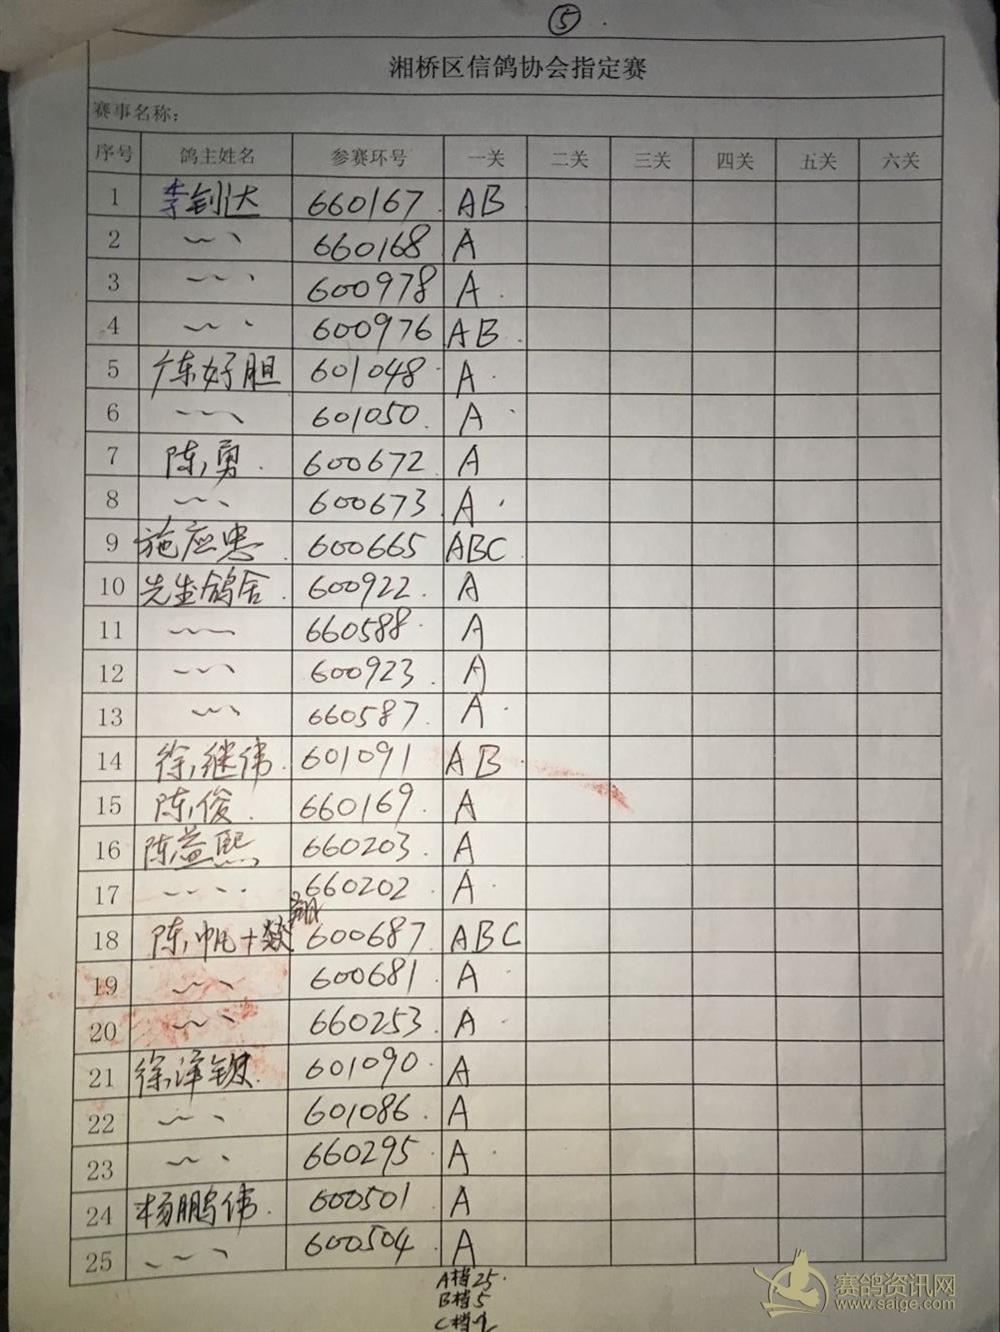 ⑤
湘桥区信鸽协会指定赛
赛事名称:
序号 鸽主姓名 参赛环号 一关 二关 三关 四关 五关 六关
1 李钊达 660167 AB
2 〃 660168 A
3 〃 600978 A
4 〃 600976 AB
5 广东好胆 601048 A
6 〃 601050 A
7 陈勇 600672 A
8 〃 600673 A
9 施应忠 600665 ABC
10 先生鸽舍 600922 A
11 〃 660588 A
12 〃 600923 A
13 〃 660587 A
14 徐继伟 601091 AB
15 陈俊 660169 A
16 陈益熙 660203 A
17 〃 660202 A
18 陈帆+ 600687 ABC
19 〃 600681 A
20 〃 660253 A
21 徐泽 601090 A
22 〃 601086 A
23 〃 660295 A
24 杨鹏伟 600501 A
25 〃 600504 A
A档25
B档5
C档2
赛鸽资讯网
www.saige.com